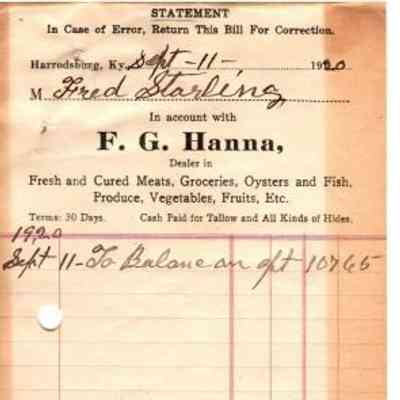 STATEMENT
In Case of Error, Return This Bill For Correction.
Harrodsburg, Ky. Sept - 11 - 1920
M Fred Starling
In account with
F. G. Hanna,
Dealer in
Fresh and Cured Meats, Groceries, Oysters and Fish,
Produce, Vegetables, Fruits, Etc.
Terms: 30 Days. Cash Paid for Tallow and All Kinds of Hides.
1920
Sept 11 - To Balance on 107 65